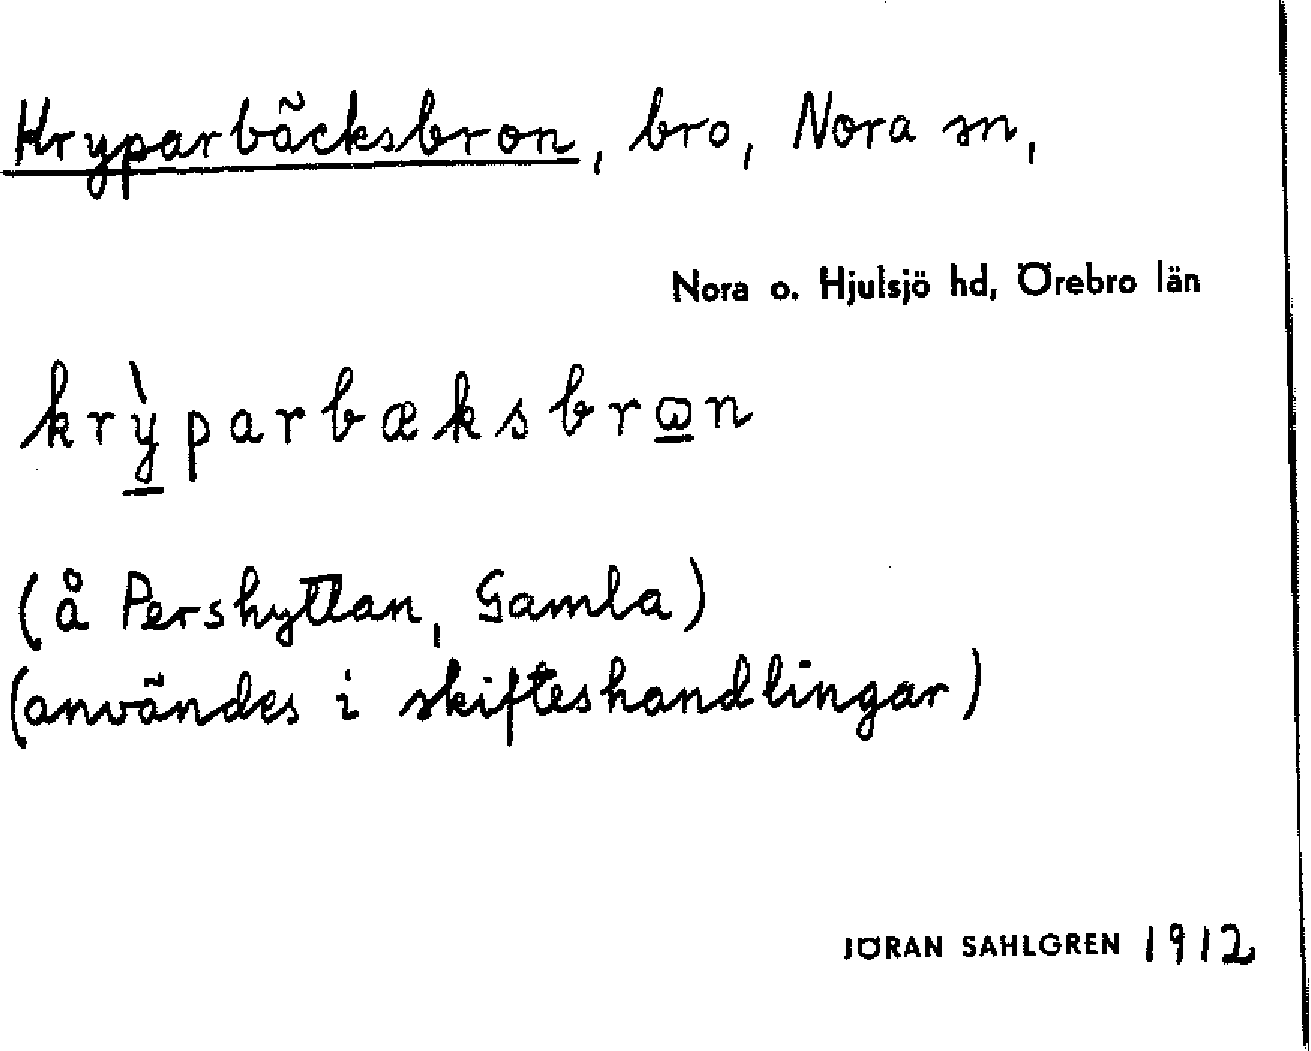 Kryparbäcksbron, bro, Nora sn,
Nora o. Hjulsjö hd, Örebro län
krỳparbæksbrꞷn
(å Pershyttan, Gamla)
(användes i skifteshandlingar)
JÖRAN SAHLGREN 1912